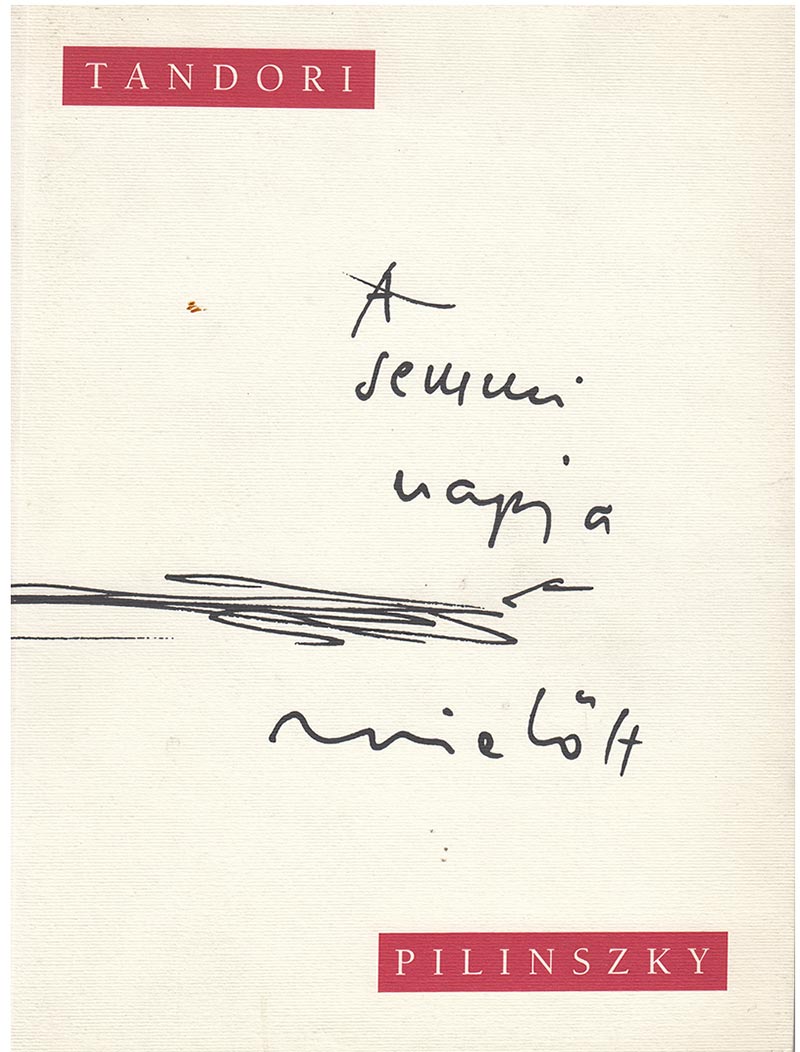 TANDORI
A
semmi
napja
mielőtt
PILINSZKY